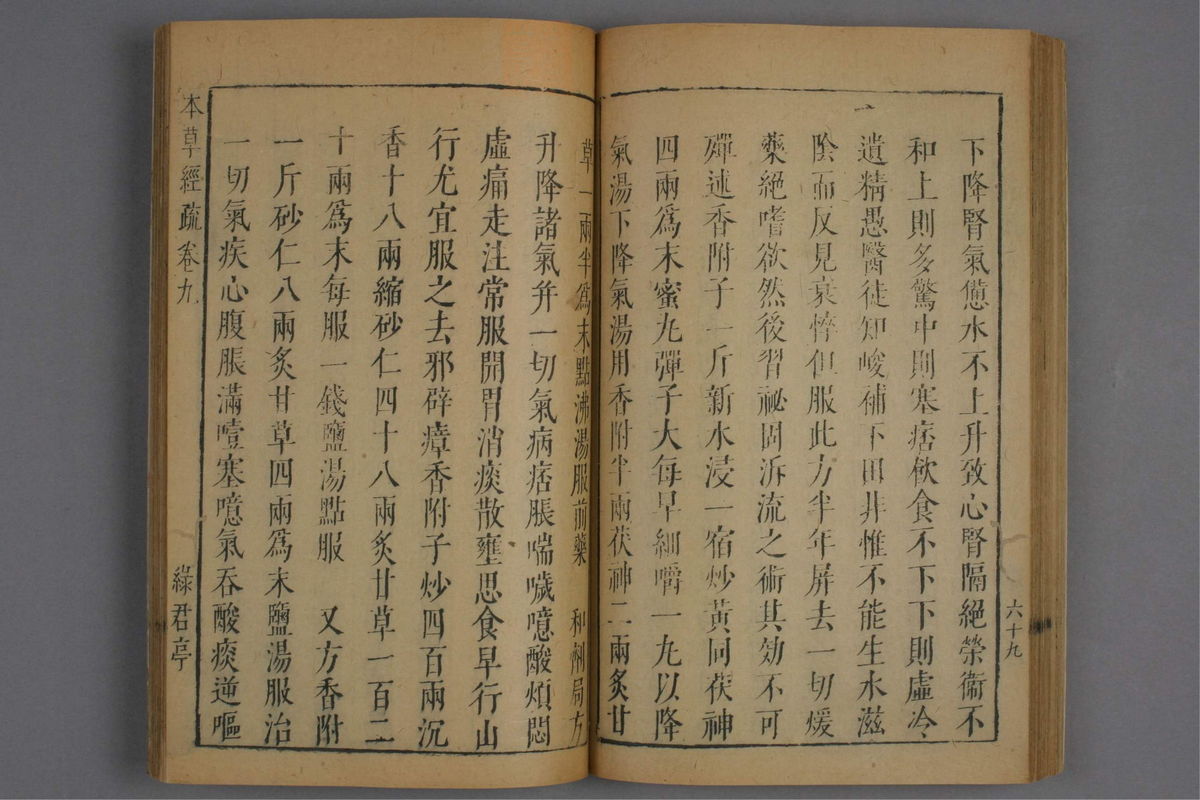 六十九
下降腎氣憊水不上升致心腎隔絕榮衞不
和上則多驚中則塞痞飲食不下下則虛冷
遺精愚醫徒知峻補下田非惟不能生水滋
陰而反見衰悴但服此方半年屏去一切煖
藥絕嗜欲然後習祕固泝流之術其効不可
殫述香附子一斤新水浸一宿炒黃同茯神
四兩爲末蜜丸彈子大每早細嚼一丸以降
氣湯下降氣湯用香附半兩茯神二兩炙甘
草一兩半爲末點沸湯服前藥 和劑局方
升降諸氣并一切氣病痞脹喘噦噫酸煩悶
虛痛走注常服開胃消痰散壅思食早行山
行尤宜服之去邪辟瘴香附子炒四百兩沉
香十八兩縮砂仁四十八兩炙甘草一百二
十兩爲末每服一錢鹽湯點服 又方香附
一斤砂仁八兩炙甘草四兩爲末鹽湯服治
一切氣疾心腹脹滿噎塞噫氣吞酸痰逆嘔
本草經疏 卷九
綠君亭